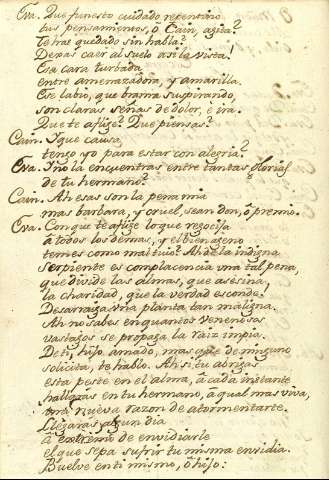 Eva. Que funesto cuidado repentino
tus pensamientos, ô Cain, agita?
Te has quedado sin habla?
Dexas caer al suelo asi la vista!
Esa cara turbada
entre amenazadora, y amarilla
Ese labio, que brama suspirando,
son claras señas de dolor, è ira.
Que te aflige? Que piensas?
Cain. Y que causa,
tengo yo para estar con alegria?
Eva. Y nó la encuentras entre tantas glorias
de tu hermano?
Cain. Ah esas son la pena mia
mas barbara, y cruel, sean don, ô premio.
Eva. Con que te aflige lo que regocija
à todos los demas, y el bien ageno
temes como mal tuio? Ah de la indigna
serpiente es complacencia una tal pena,
que divide las almas, que asesina,
la charidad, que la verdad esconde.
Desarraiga una planta tan maligna.
Ah no sabes en quantos venenosos
vastagos se propaga la raiz impia.
De ti, hijo amado, mas que de ninguno
solicita, te hablo. Ah si tu abrigas
esta peste en el alma, à cada instante
hallaràs en tu hermano, a qual mas viva,
una nueva razon de atormentarte.
Llegaras algun dia
à extremo de envidiarle
el que sepa sufrir tu misma envidia.
Buelve en ti mismo, ô hijo: